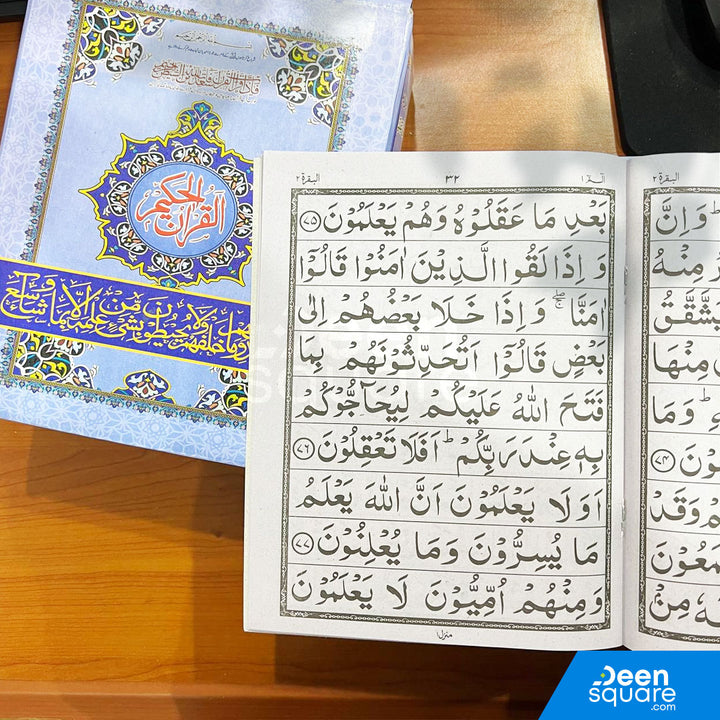 القرآن الحكيم
البقرة ٢
٣٢
الٓمّٓ ١
بَعْدِ مَا عَقَلُوْهُ وَهُمْ يَعْلَمُوْنَ ﴿٧٥﴾
وَ اِذَا لَقُوا الَّذِيْنَ اٰمَنُوْا قَالُوْٓا
اٰمَنَّا ۖۚ وَ اِذَا خَلَا بَعْضُهُمْ اِلٰى
بَعْضٍ قَالُوْٓا اَتُحَدِّثُوْنَهُمْ بِمَا
فَتَحَ اللّٰهُ عَلَيْكُمْ لِيُحَآجُّوْكُمْ
بِهٖ عِنْدَ رَبِّكُمْ ؕ اَفَلَا تَعْقِلُوْنَ ﴿٧٦﴾
اَوَ لَا يَعْلَمُوْنَ اَنَّ اللّٰهَ يَعْلَمُ
مَا يُسِرُّوْنَ وَمَا يُعْلِنُوْنَ ﴿٧٧﴾
وَمِنْهُمْ اُمِّيُّوْنَ لَا يَعْلَمُوْنَ
منزل ١
البقرة ٢
وَ اِنَّ
مِنْهُ
يَشَّقَّقُ
مِنْهَا
وَ مَا
﴿٧٤﴾
وَقَدْ
مِنْ
Deen
square
.com